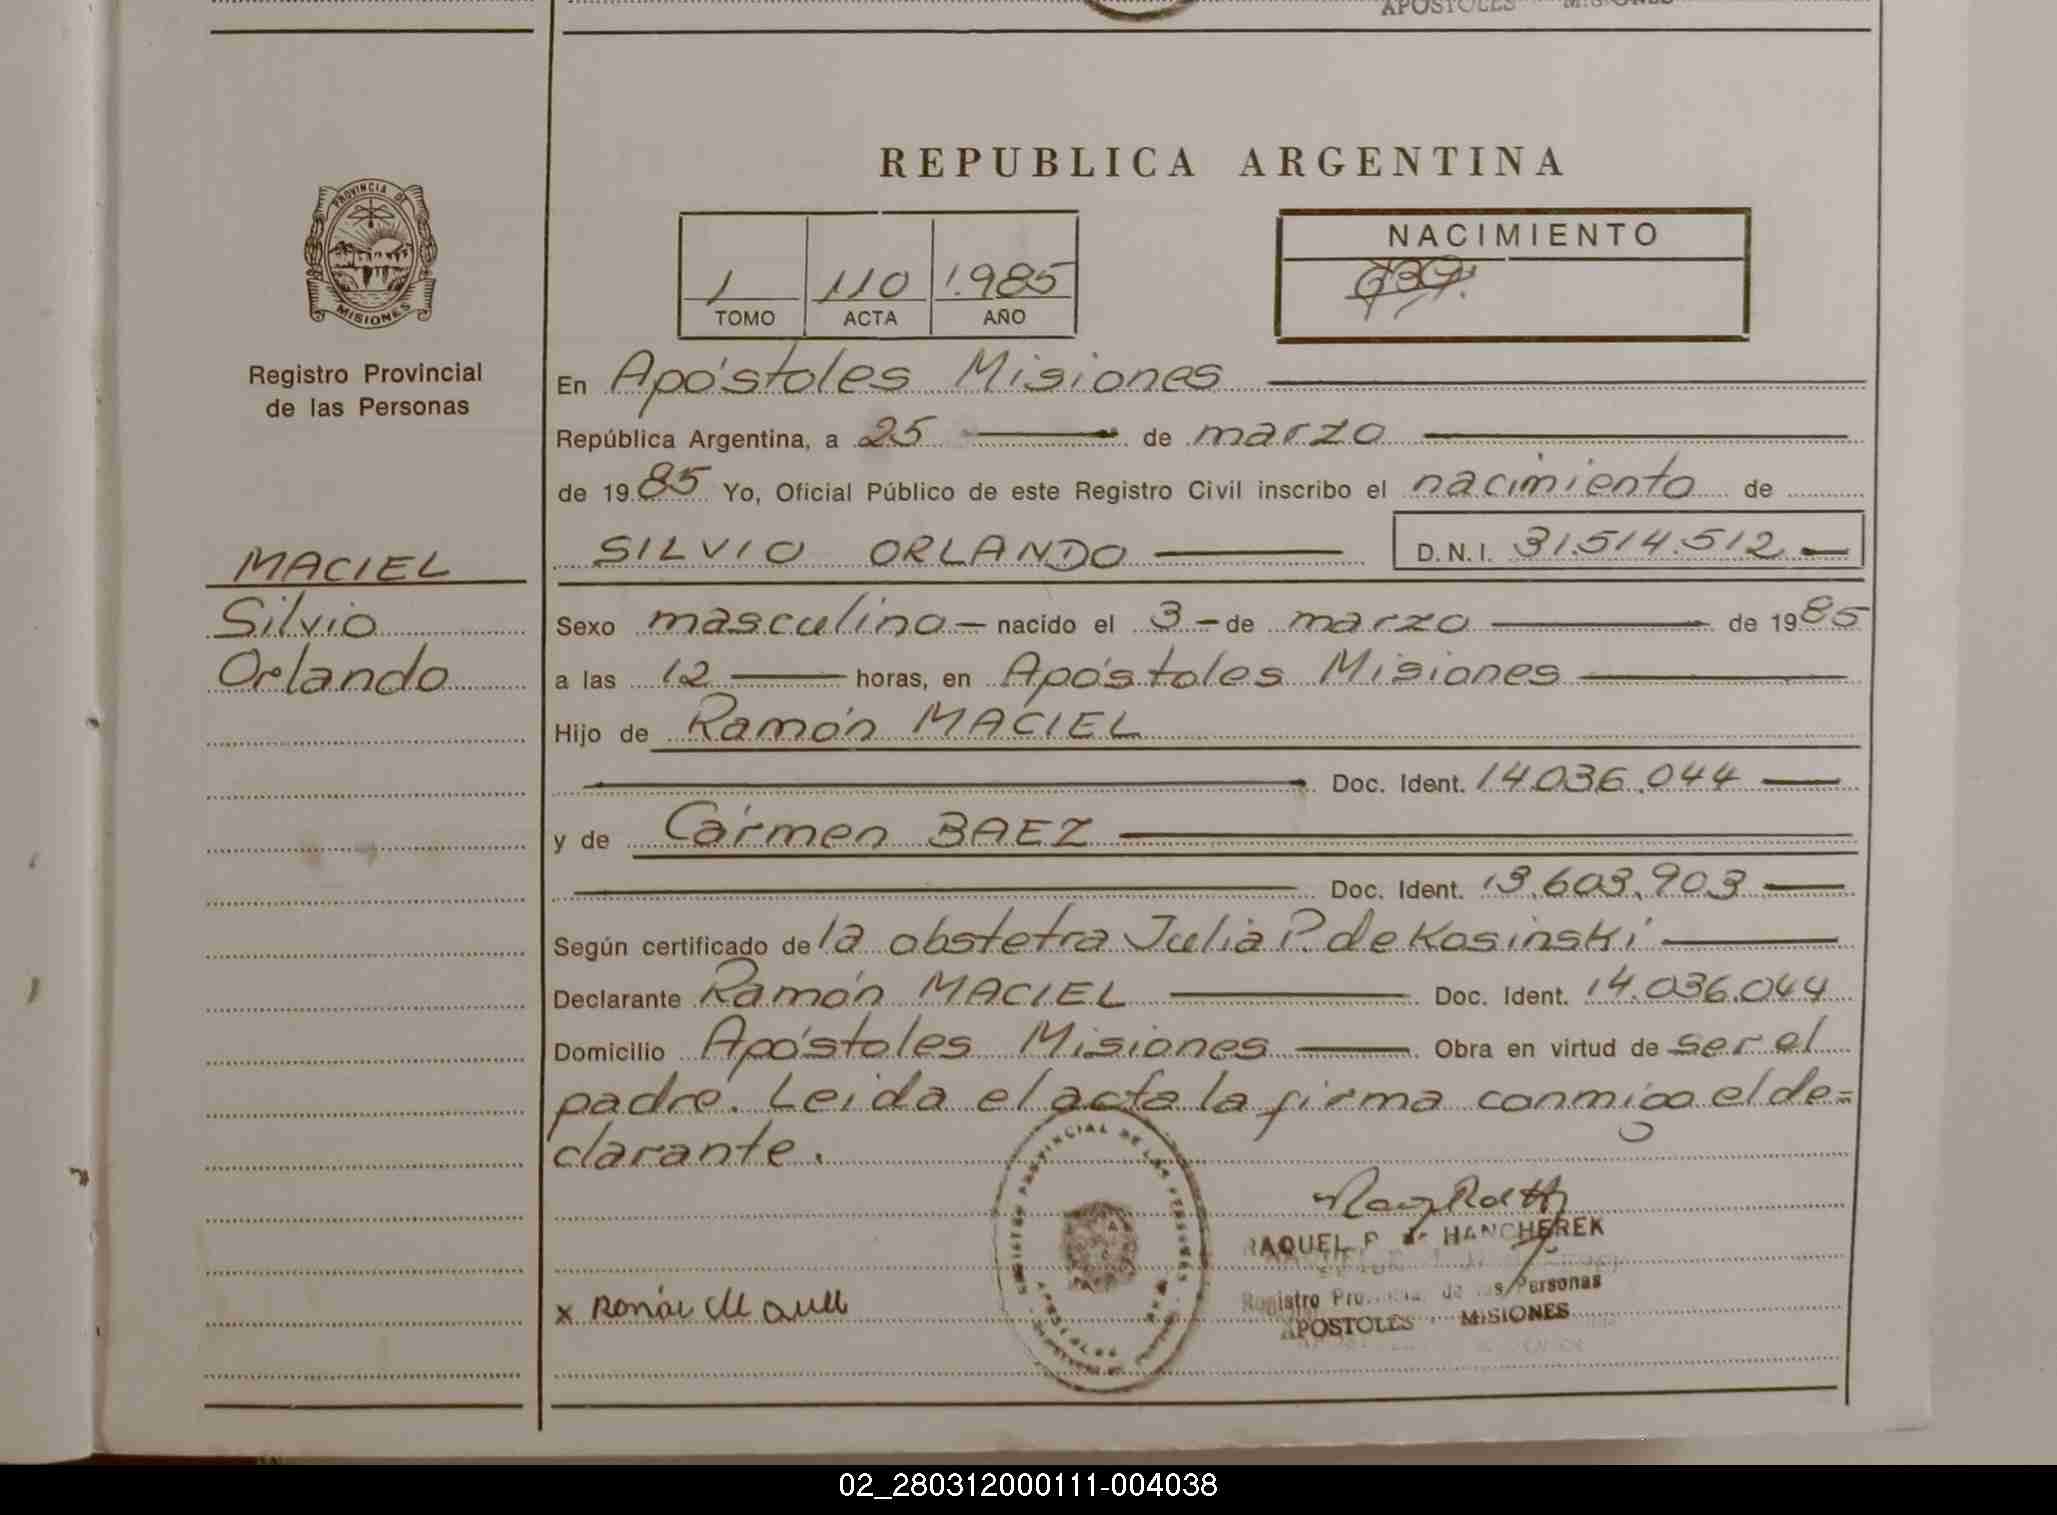 APOSTOLES MISIONES
PROVINCIA DE
MISIONES
Registro Provincial
de las Personas
MACIEL
Silvio
Orlando
REPUBLICA ARGENTINA
1 110 1.985
TOMO ACTA AÑO
NACIMIENTO
En Apóstoles Misiones
República Argentina, a 25 de marzo
de 1985 Yo, Oficial Público de este Registro Civil inscribo el nacimiento de
SILVIO ORLANDO D.N.I. 31.514.512
Sexo masculino nacido el 3 de marzo de 1985
a las 12 horas, en Apóstoles Misiones
Hijo de Ramón MACIEL
Doc. Ident. 14.036.044
y de Carmen BAEZ
Doc. Ident. 13.603.903
Según certificado de la obstetra Julia P. de Kosinski
Declarante Ramón MACIEL Doc. Ident. 14.036.044
Domicilio Apóstoles Misiones Obra en virtud de ser el
padre. Leida el acta la firma conmigo el de=
clarante.
REGISTRO PROVINCIAL DE LAS PERSONAS
RAQUEL P. de HANCHEREK
Registro Provincial de las Personas
APOSTOLES MISIONES
x
02_280312000111-004038